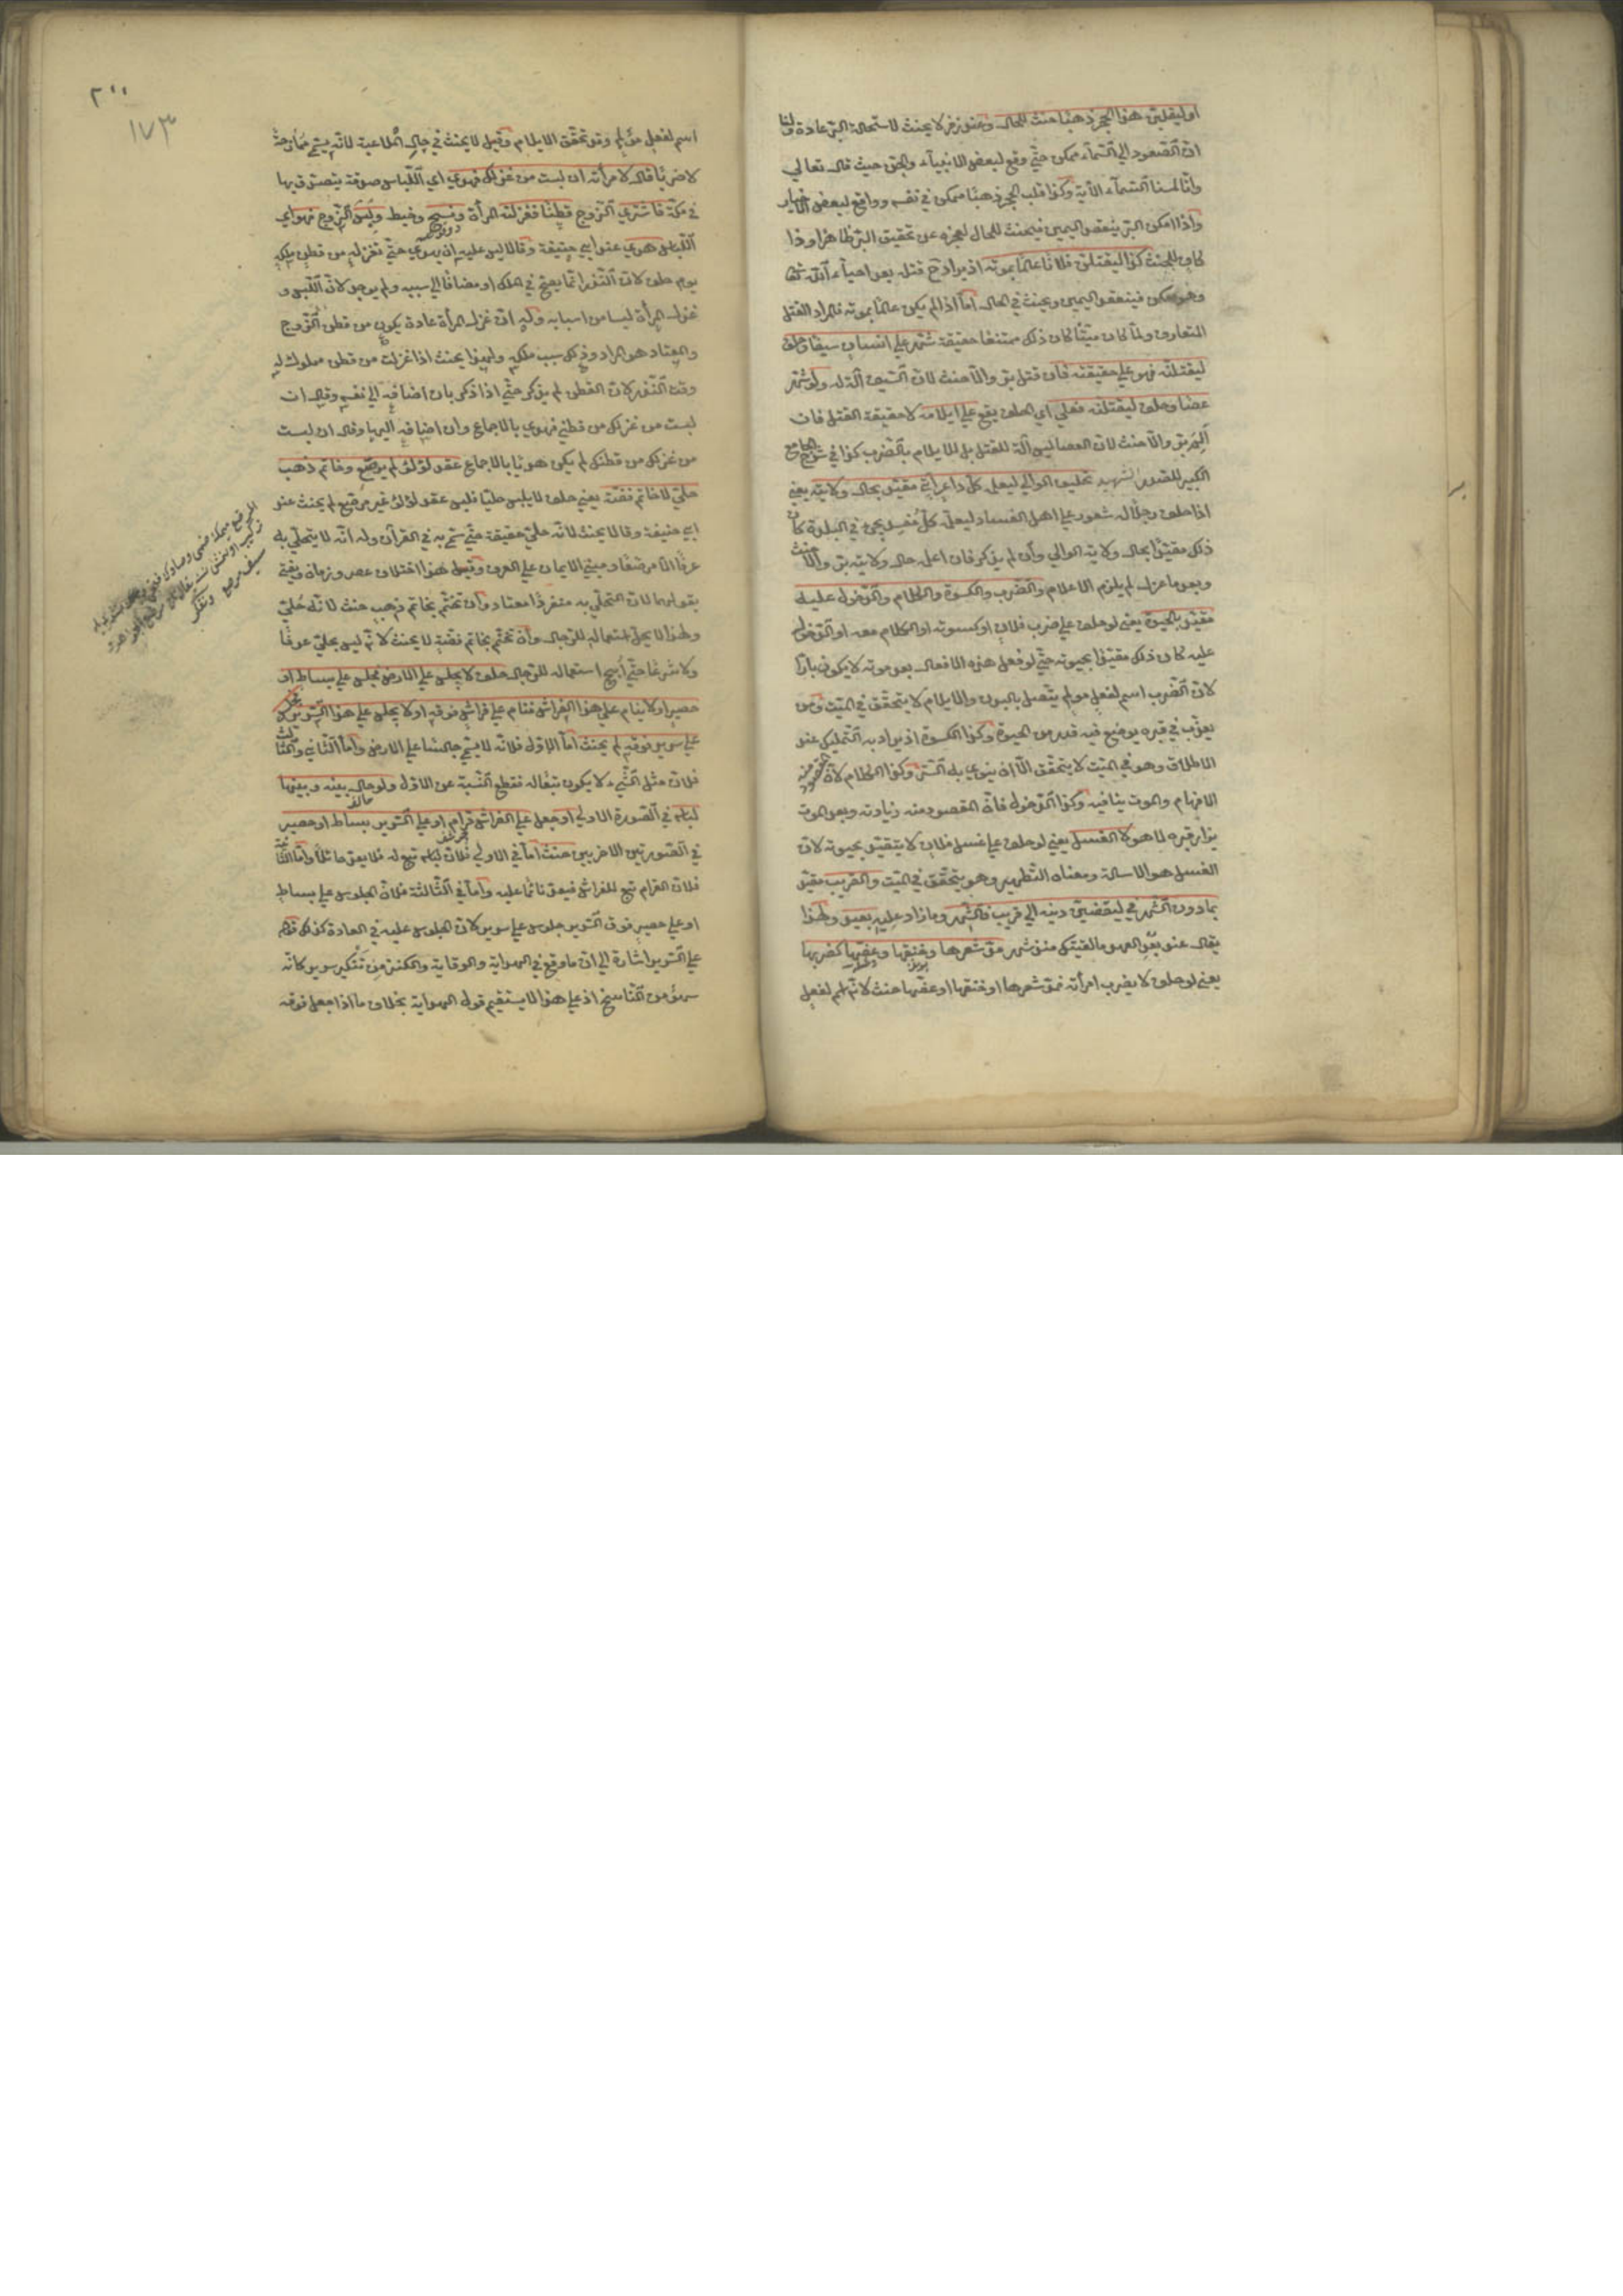 او ليقلبن هذا الحجر ذهبا حنث للحال وعند زفر لا يحنث لاستحالة البر عادة ولنا
ان الصعود الى السماء ممكن حتى وقع لبعض الانبياء والجن حيث قال تعالى
وانا لمسنا السماء الآية وكذا قلب الحجر ذهبا ممكن في نفسه وواقع لبعض الاخيار
واذا امكن البر ينعقد اليمين فيحنث للحال لعجزه عن تحقيق البر ظاهرا وذا
كاف للحنث كذا ليقتلن فلانا عالما بموته اذ يراد ح قتله بعد احياء الله تعا
وهو ممكن فينعقد اليمين ويحنث في الحال اما اذا لم يكن عالما بموته فالمراد القتل
المتعارف ولما كان ميتا كان ذلك ممتنعا حقيقة شهر على انسان سيفا وحلف
ليقتلنه فهو على حقيقته فان قتل بر والا حنث لان السيف آلة له ولو شهر
عصا وحلف ليقتلنه فعلى اي الحلف يقع على ايلامه لا حقيقة القتل فان
آلمه بر والا حنث لان العصا ليس آلة للقتل بل للايلام بالضرب كذا في شرح الجامع
الكبير للصدر الشهيد تحليف الوالي ليعلمن كل داعر اتى مقيد بحال ولايته يعني
اذا حلف رجلا له شعور على اهل الفساد ليعلمن كل مفسد يجيء في البلدة كان
ذلك مقيدا بحال ولاية الوالي وان لم يذكر فان اعلم حال ولايته بر والا حنث
وبعد ما عزل لم يلزم الاعلام والضرب والكسوة والكلام والدخول عليه
مقيد بالحيوة يعني لو حلف على ضرب فلان او كسوته او الكلام معه او الدخول
عليه كان ذلك مقيدا بحيوته حتى لو فعل هذه الافعال بعد موته لا يكون بارا
لان الضرب اسم لفعل مولم يتصل بالبدن والايلام لا يتحقق في الميت ومن
يعذب في قبره يوضع فيه قدر من الحيوة وكذا الكسوة اذ يراد به التمليك عند
الاطلاق وهو في الميت لا يتحقق الا ان ينوي به الستر وكذا الكلام لان المقصود منه
الافهام والموت ينافيه وكذا الدخول فان المقصود منه زيارته وبعد الموت
يزار قبره لا هو لا الغسل يعني لو حلف على غسل فلان لا يتقيد بحيوته لان
الغسل هو الاسالة ومعناه التطهير وهو يتحقق في الميت والقريب مقيد
بما دون الشهر في ليقضين دينه الى قريب فالشهر وما زاد عليه بعيد ولهذا
يقال عند بعد العهد ما لقيتك منذ شهر مد شعرها وخنقها وعضها كضربها
يعني لو حلف لا يضرب امرأته فمد شعرها او خنقها او عضها حنث لانه اسم لفعل
٢٠٠
١٧٣
اسم لفعل مؤلم وقد تحقق الايلام وقيل لا يحنث في حال الملاعبة لانه يسمى ممازحة
لا ضربا قال لامرأته ان لبست من غزلك فهدي اي اللباس صدقة يتصدق بها
في مكة فاشترى الزوج قطنا فغزلته المرأة ونسج وخيط ولبس الزوج فهو اي
اللباس هدي عند ابي حنيفة وقالا ليس عليه ان يهدي حتى تغزله من قطن ملكه
يوم حلف لان النذر انما يصح في الملك او مضافا الى سببه ولم يوجد لان اللبس و
غزل المرأة ليسا من اسبابه وله ان غزل المرأة عادة يكون من قطن الزوج
والمعتاد هو المراد وذلك سبب ملكه ولهذا يحنث اذا غزلت من قطن مملوك له
وقت النذر لان القطن لم يذكر حتى اذا ذكر بان اضافه الى نفسه وقال ان
لبست من غزلك من قطني فهدي بالاجماع وان اضافه اليها وقال ان لبست
من غزلك من قطنك لم يكن هديا بالاجماع عقد لؤلؤ لم يرصع وخاتم ذهب
حلي لا خاتم فضة يعني حلف لا يلبس حليا فلبس عقد لؤلؤ غير مرصع لم يحنث عند
ابي حنيفة وقالا يحنث لانه حلي حقيقة حتى سمي به في القرآن وله انه لا يتحلى به
عرفا الا مرصعا ومبنى الايمان على العرف وقيل هذا اختلاف عصر وزمان ويفتى
بقولهما لان التحلي به منفردا معتاد وان تختم بخاتم ذهب حنث لانه حلي
ولهذا لا يحل استعماله للرجال وان تختم بخاتم فضة لا يحنث لانه ليس بحلي عرفا
ولا شرعا حتى ابيح استعماله للرجال حلف لا يجلس على الارض فجلس على بساط او
حصير او لا ينام على هذا الفراش فنام على فراش فوقه او لا يجلس على هذا السرير فجلس
على سرير فوقه لم يحنث اما الاول فلانه لا يسمى جالسا على الارض واما الثاني والثالث
فلان مثل الشيء لا يكون تبعا له فقطع النسبة عن الاول ولو حال بينه وبينها
لباسه في الصورة الاولى او جعل على الفراش قرام او على السرير بساط او حصير
في الصورتين الاخريين حنث اما في الاولى فلان لباسه تبع له فلا يعد حائلا واما الثانية
فلان القرام تبع للفراش فيعد نائما عليه واما في الثالثة فلان الجلوس على بساط
او على حصير فوق السرير جلوس على سرير لان الجلوس عليه في العادة كذلك فظهر
على السرير اشارة الى ان ما وقع في الهداية والوقاية والكنز من تنكير سرير كانه
سهو من الناسخ اذ على هذا لا يستقيم قول الهداية بخلاف ما اذا جعل فوقه